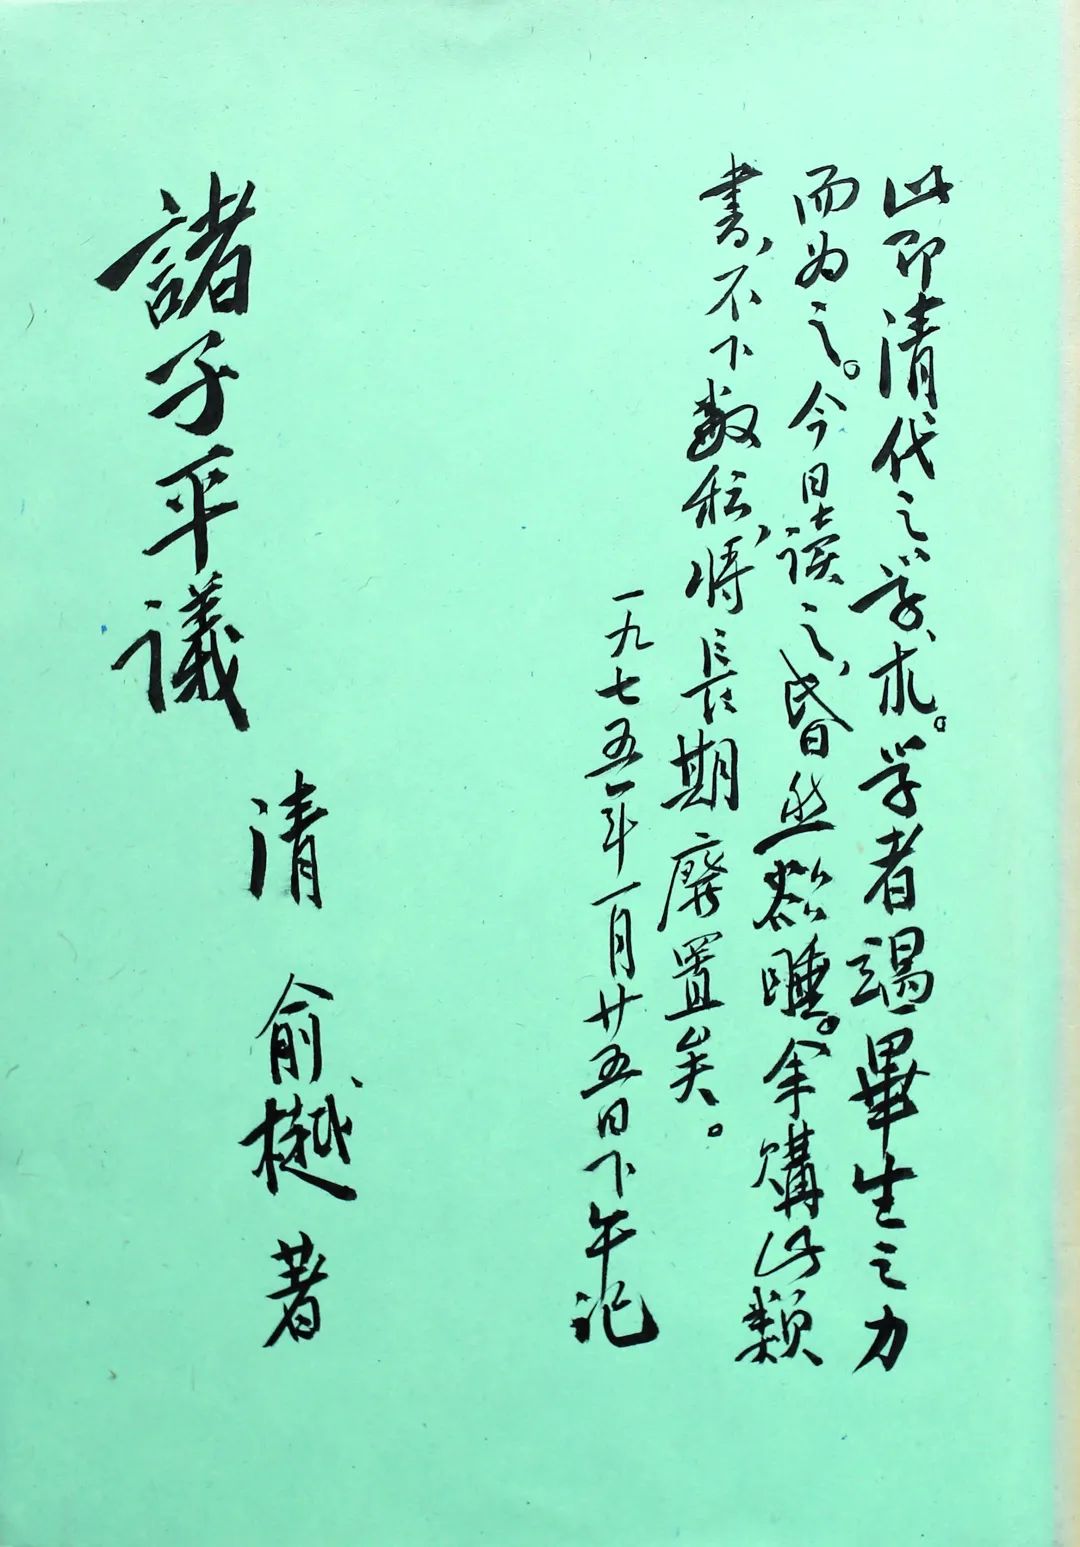 此即清代之学术。学者竭畢生之力
而为之。今日读之，昏然欲睡。余購此类
書，不下数种，将長期废置矣。
一九七五年一月廿五日下午记
諸子平議
清 俞樾 著